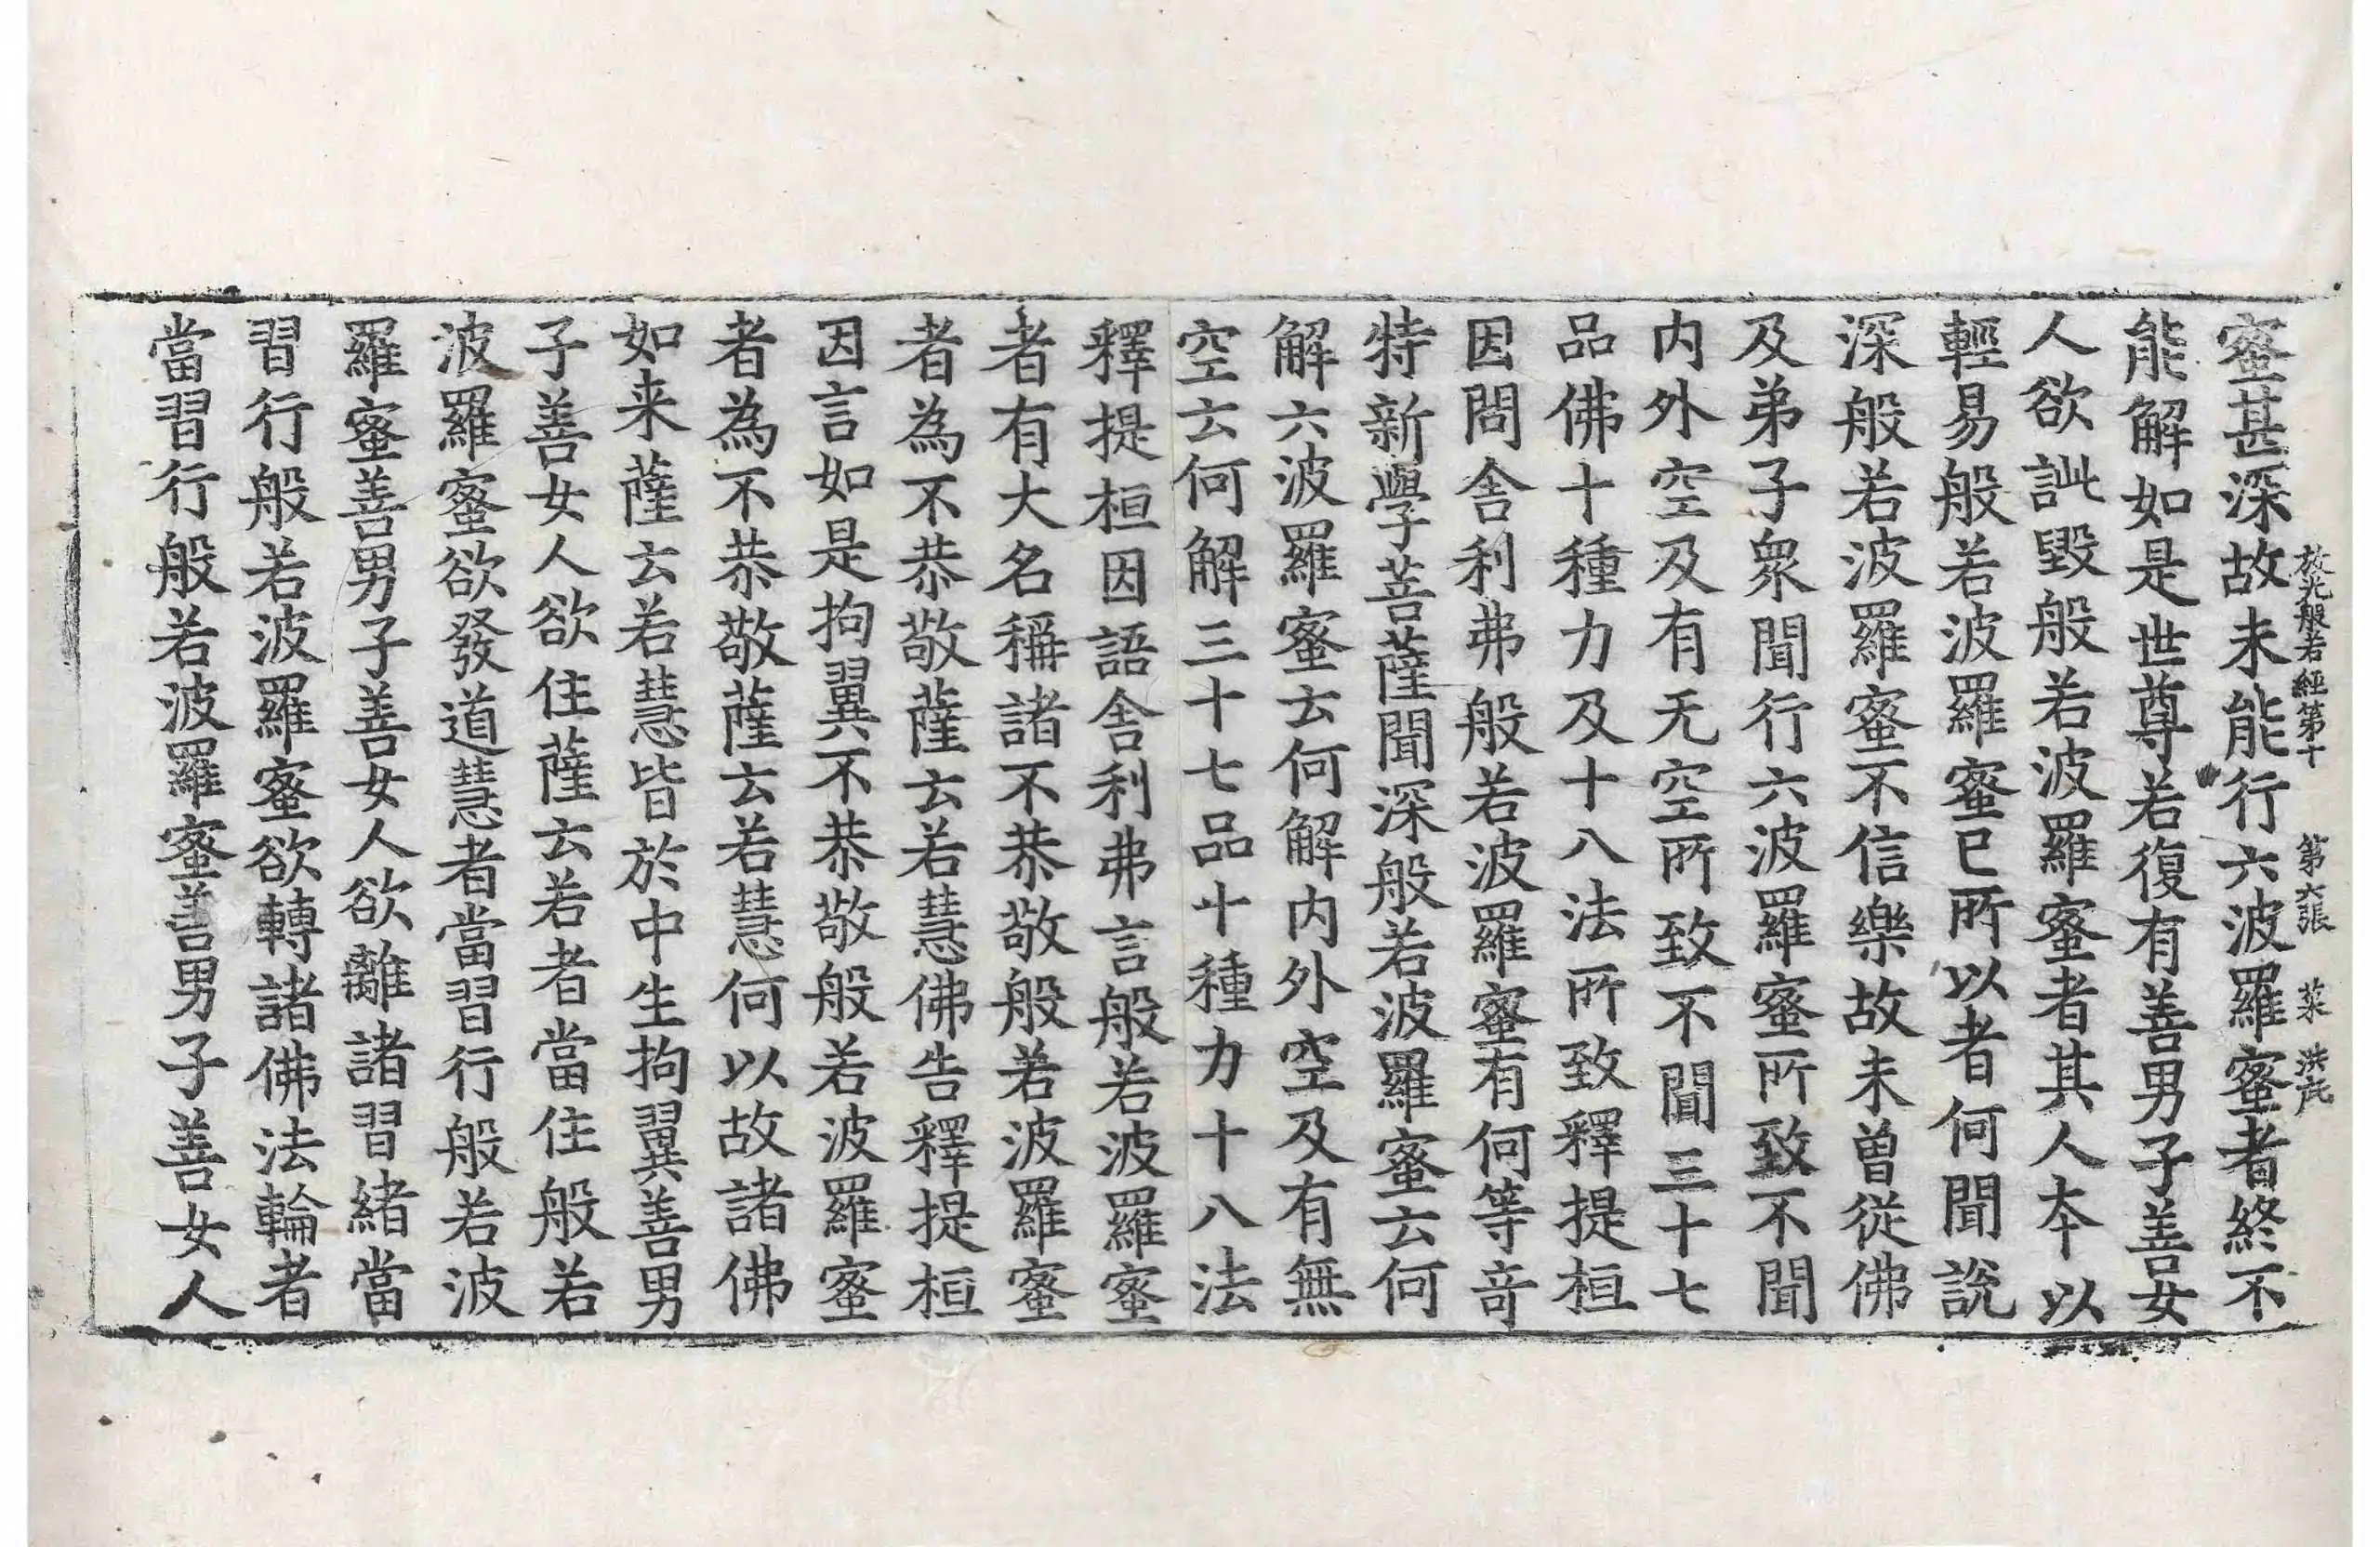 放光般若經第十 第六張 菜 洪茂
蜜甚深故未能行六波羅蜜者終不
能解如是世尊若復有善男子善女
人欲訿毀般若波羅蜜者其人本以
輕易般若波羅蜜已所以者何聞說
深般若波羅蜜不信樂故未曽從佛
及弟子眾聞行六波羅蜜所致不聞
内外空及有无空所致不聞三十七
品佛十種力及十八法所致釋提桓
因問舍利弗般若波羅蜜有何等奇
特新學菩薩聞深般若波羅蜜云何
解六波羅蜜云何解内外空及有無
空云何解三十七品十種力十八法
釋提桓因語舍利弗言般若波羅蜜
者有大名稱諸不恭敬般若波羅蜜
者為不恭敬薩云若慧佛告釋提桓
因言如是拘翼不恭敬般若波羅蜜
者為不恭敬薩云若慧何以故諸佛
如来薩云若慧皆於中生拘翼善男
子善女人欲住薩云若者當住般若
波羅蜜欲發道慧者當習行般若波
羅蜜善男子善女人欲離諸習緒當
習行般若波羅蜜欲轉諸佛法輪者
當習行般若波羅蜜善男子善女人